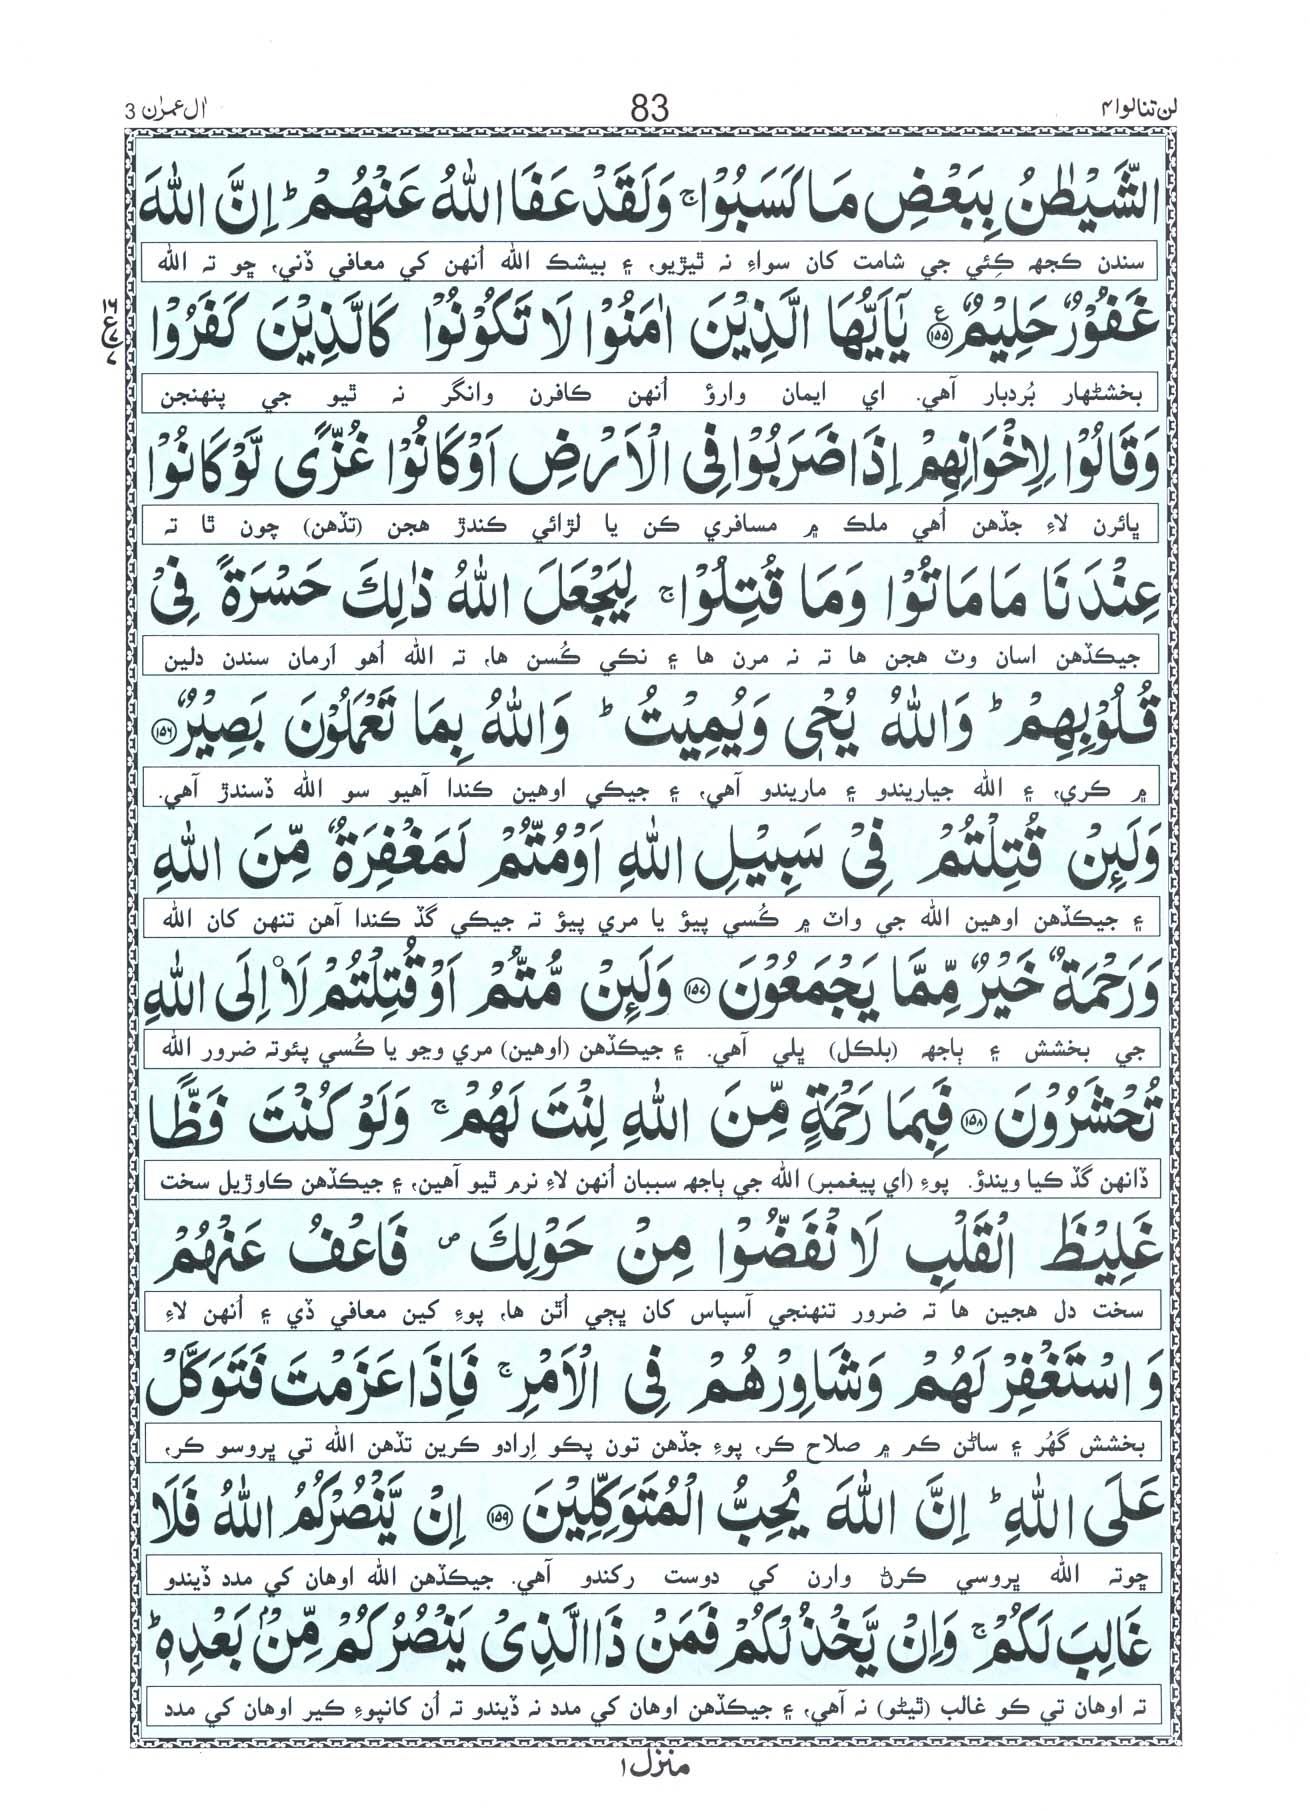 لن تنالوا ۴
83
اٰل عمرٰن 3
الشَّيْطٰنُ بِبَعْضِ مَا كَسَبُوْا ۚ وَلَقَدْ عَفَا اللّٰهُ عَنْهُمْ ؕ اِنَّ اللّٰهَ
سندن ڪجهہ ڪِئي جي شامت کان سواءِ نہ ٿيڙيو، ۽ بيشڪ الله اُنهن کي معافي ڏني، ڇو تہ الله
غَفُوْرٌ حَلِيْمٌ ﴿۱۵۵﴾ ع يٰۤاَيُّهَا الَّذِيْنَ اٰمَنُوْا لَا تَكُوْنُوْا كَالَّذِيْنَ كَفَرُوْا
۱۶ ع ۷
بخشڻهار بُردبار آهي. اي ايمان وارؤ اُنهن ڪافرن وانگر نہ ٿيو جي پنهنجن
وَقَالُوْا لِاِخْوَانِهِمْ اِذَا ضَرَبُوْا فِى الْاَرْضِ اَوْ كَانُوْا غُزًّى لَّوْ كَانُوْا
ڀائرن لاءِ جڏهن اُهي ملڪ ۾ مسافري ڪن يا لڙائي ڪندڙ هجن (تڏهن) چون ٿا تہ
عِنْدَنَا مَا مَاتُوْا وَمَا قُتِلُوْا ۚ لِيَجْعَلَ اللّٰهُ ذٰلِكَ حَسْرَةً فِىْ
جيڪڏهن اسان وٽ هجن ها تہ نہ مرن ها ۽ نڪي ڪُسن ها، تہ الله اُهو اَرمان سندن دلين
قُلُوْبِهِمْ ؕ وَاللّٰهُ يُحْىٖ وَيُمِيْتُ ؕ وَاللّٰهُ بِمَا تَعْمَلُوْنَ بَصِيْرٌ ﴿۱۵۶﴾
۾ ڪري، ۽ الله جياريندو ۽ ماريندو آهي، ۽ جيڪي اوهين ڪندا آهيو سو الله ڏسندڙ آهي.
وَلَئِنْ قُتِلْتُمْ فِىْ سَبِيْلِ اللّٰهِ اَوْ مُتُّمْ لَمَغْفِرَةٌ مِّنَ اللّٰهِ
۽ جيڪڏهن اوهين الله جي واٽ ۾ ڪُسي پيؤ يا مري پيؤ تہ جيڪي گڏ ڪندا آهن تنهن کان الله
وَرَحْمَةٌ خَيْرٌ مِّمَّا يَجْمَعُوْنَ ﴿۱۵۷﴾ وَلَئِنْ مُّتُّمْ اَوْ قُتِلْتُمْ لَا۟اِلَى اللّٰهِ
جي بخشش ۽ ٻاجهہ (بلڪل) ڀلي آهي. ۽ جيڪڏهن (اوهين) مري وڃو يا ڪُسي پئوتہ ضرور الله
تُحْشَرُوْنَ ﴿۱۵۸﴾ فَبِمَا رَحْمَةٍ مِّنَ اللّٰهِ لِنْتَ لَهُمْ ۚ وَلَوْ كُنْتَ فَظًّا
ڏانهن گڏ ڪيا ويندؤ. پوءِ (اي پيغمبر) الله جي ٻاجهہ سببان اُنهن لاءِ نرم ٿيو آهين، ۽ جيڪڏهن ڪاوڙيل سخت
غَلِيْظَ الْقَلْبِ لَا نْفَضُّوْا مِنْ حَوْلِكَ ۖ فَاعْفُ عَنْهُمْ
سخت دل هجين ها تہ ضرور تنهنجي آسپاس کان ڀڄي اُٿن ها، پوءِ کين معافي ڏي ۽ اُنهن لاءِ
وَاسْتَغْفِرْ لَهُمْ وَشَاوِرْهُمْ فِى الْاَمْرِ ۚ فَاِذَا عَزَمْتَ فَتَوَكَّلْ
بخشش گهُر ۽ ساڻن ڪم ۾ صلاح ڪر، پوءِ جڏهن تون پڪو اِرادو ڪرين تڏهن الله تي ڀروسو ڪر،
عَلَى اللّٰهِ ؕ اِنَّ اللّٰهَ يُحِبُّ الْمُتَوَكِّلِيْنَ ﴿۱۵۹﴾ اِنْ يَّنْصُرْكُمُ اللّٰهُ فَلَا
ڇوتہ الله ڀروسي ڪرڻ وارن کي دوست رکندو آهي. جيڪڏهن الله اوهان کي مدد ڏيندو
غَالِبَ لَكُمْ ۚ وَاِنْ يَّخْذُلْكُمْ فَمَنْ ذَا الَّذِىْ يَنْصُرُكُمْ مِّنْۢ بَعْدِهٖ ؕ
تہ اوهان تي ڪو غالب (ٿيڻو) نہ آهي، ۽ جيڪڏهن اوهان کي مدد نہ ڏيندو تہ اُن کانپوءِ ڪير اوهان کي مدد
منزل ۱